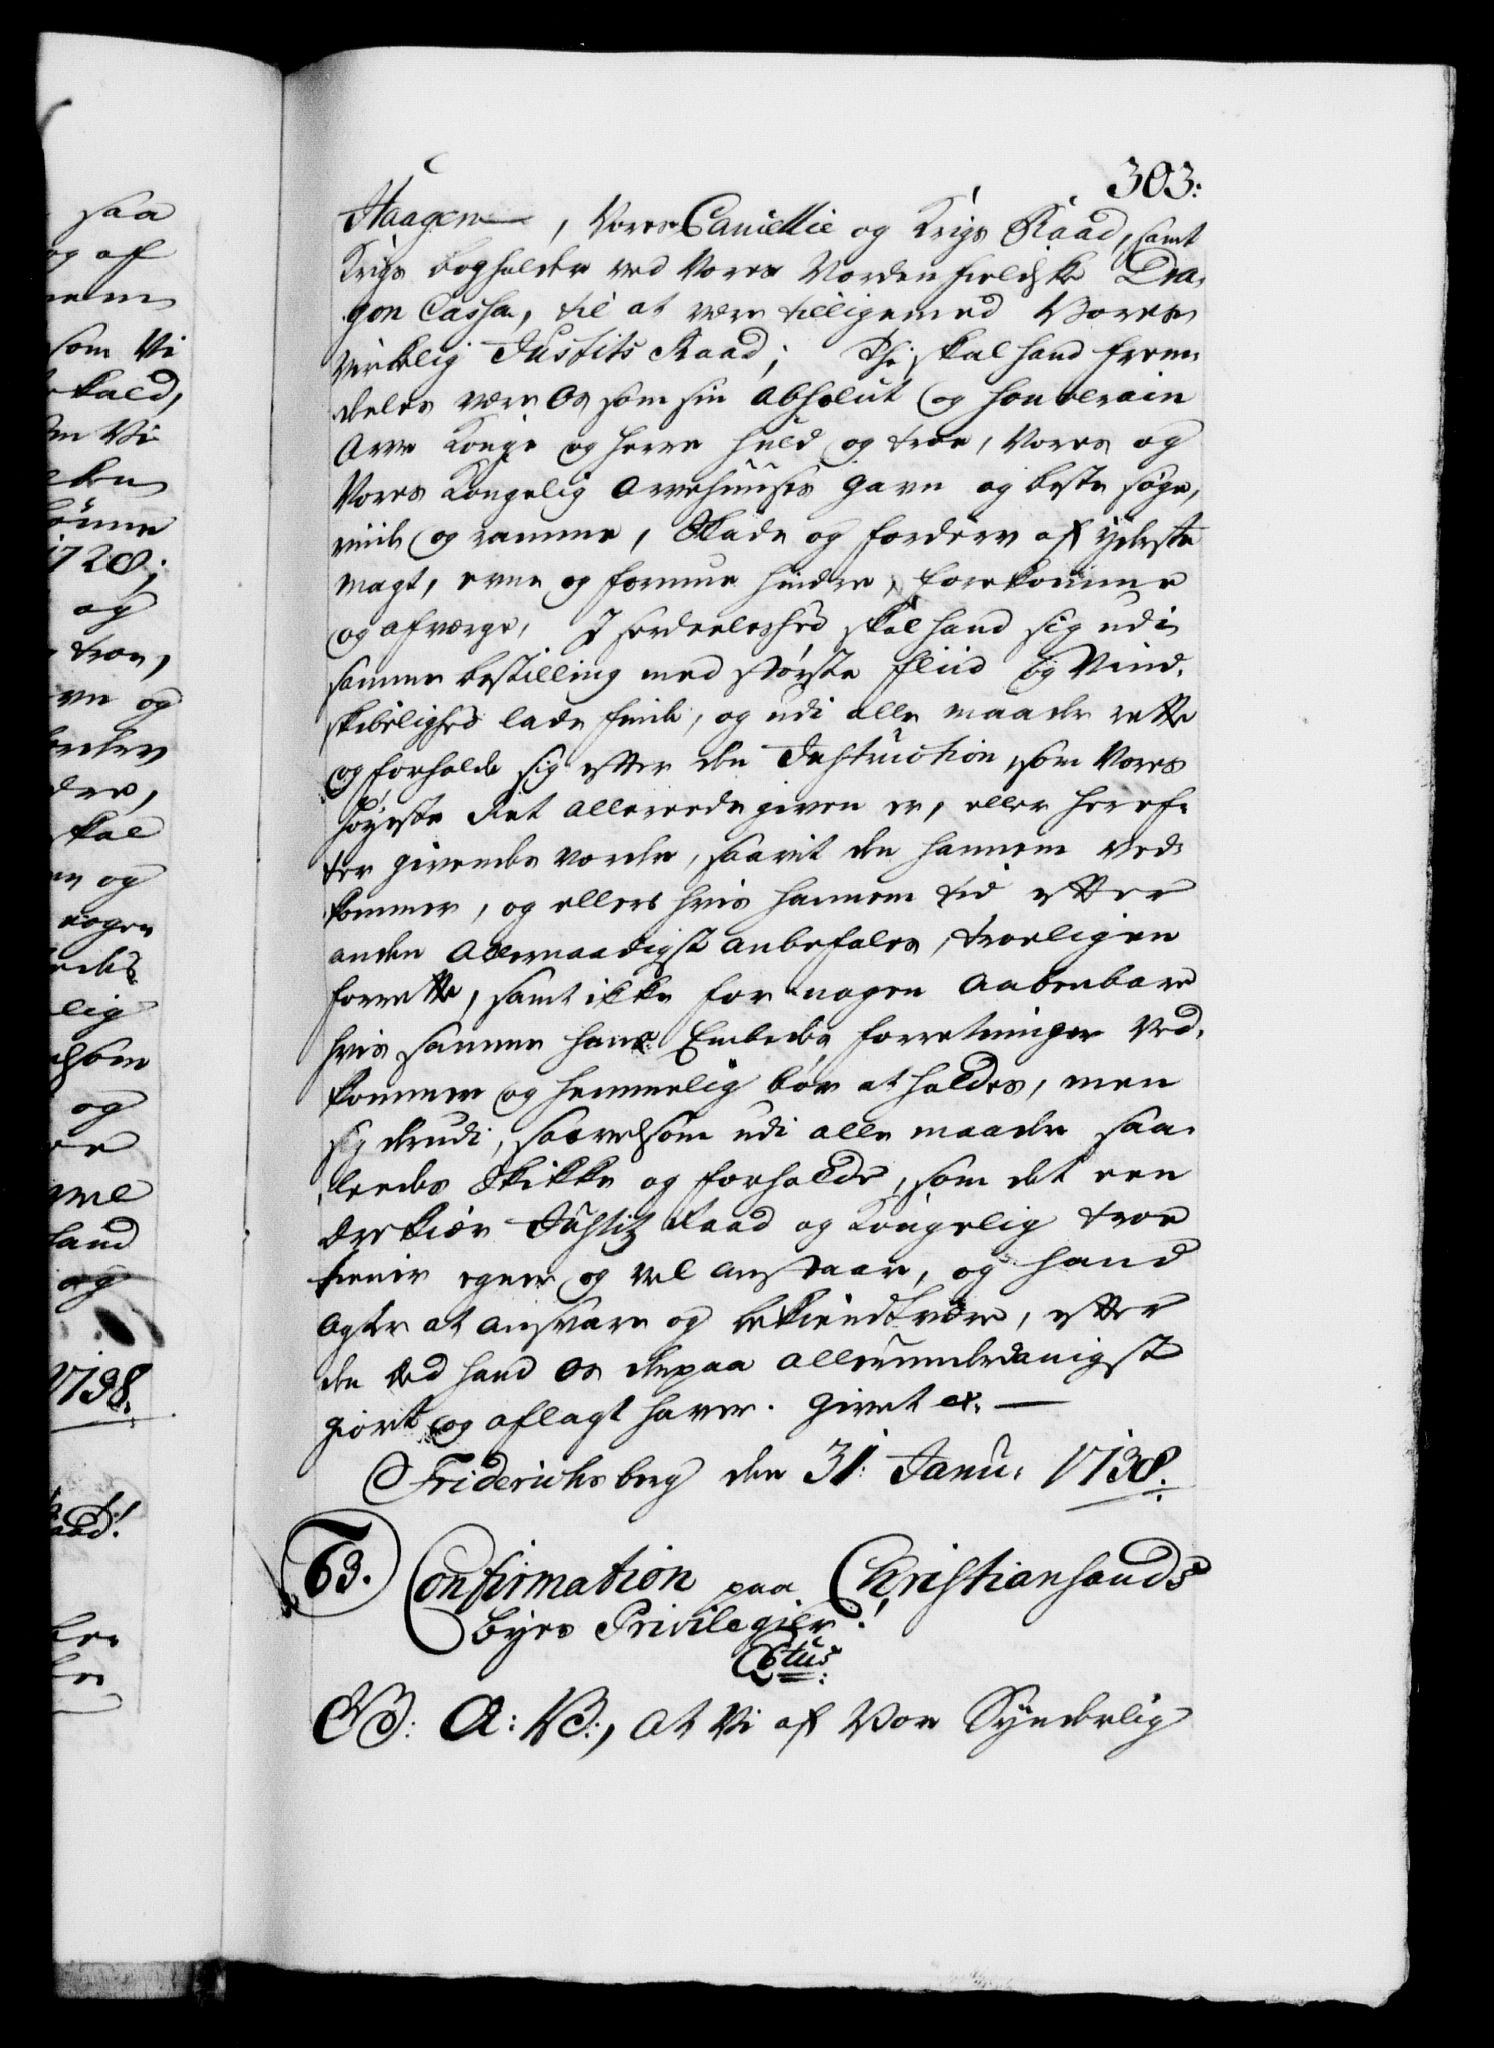 303.
Haagen, Vores Cancellie og Krigs Raad, samt
Krigs bogholder ved Vores Nordenfieldske Dra-
gon Cassa, til at være tilligemed Vores
virkelig Justits Raad; Thi skal hand frem-
deeles være Os som sin absolut og souverain
Arve Konge og Herre huld og troe, Vores og
Vores Kongelig Arvehuuses gavn og beste søge,
viide og ramme, Skade og fordærv af yderste
magt, evne og formue hindre, forekomme
og afværge, I særdeleshed skal hand sig udi
samme bestilling med største fliid og Vind-
skibelighed lade finde, og udi alle maader rette
og forholde sig efter den Instruction, som Vores
høyeste Ret allereede given er, eller heref-
ter givendes vorder, saavit den hannem ved-
kommer, og ellers hvis hannem tid efter
anden Allernaadigst anbefales, troeligen
forrette, samt ikke for nogen Aabenbare
hvis samme hans Embeds forretninger ved-
kommer og hemmelig bør at holdes, men
sig derudi, saavelsom udi alle maader saa-
leedes Skikke og forholde, som det een
ærekiær Justitz Raad og Kongelig troe
tienere egner og vel anstaar, og hand
agter at ansvare og bekiendt være, efter
den Eed hand Os derpaa allerunderdanigst
giort og aflagt haver. Givet etc.
Friderichsberg den 31. Janu: 1738.
63. Confirmation paa Christiansands
Byes Privilegier!
C6tus:
G: A: V:, at Vi af Vor Synderlig
saa
og af
som Vi
kald,
Vi
1728;
og
troe,
og
skal
og
nogen
lig
og
vel
hand
og
1738.